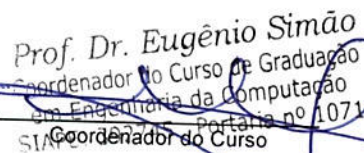 Prof. Dr. Eugênio Simão
Coordenador do Curso de Graduação
em Engenharia da Computação
Portaria nº 1071
Coordenador do Curso